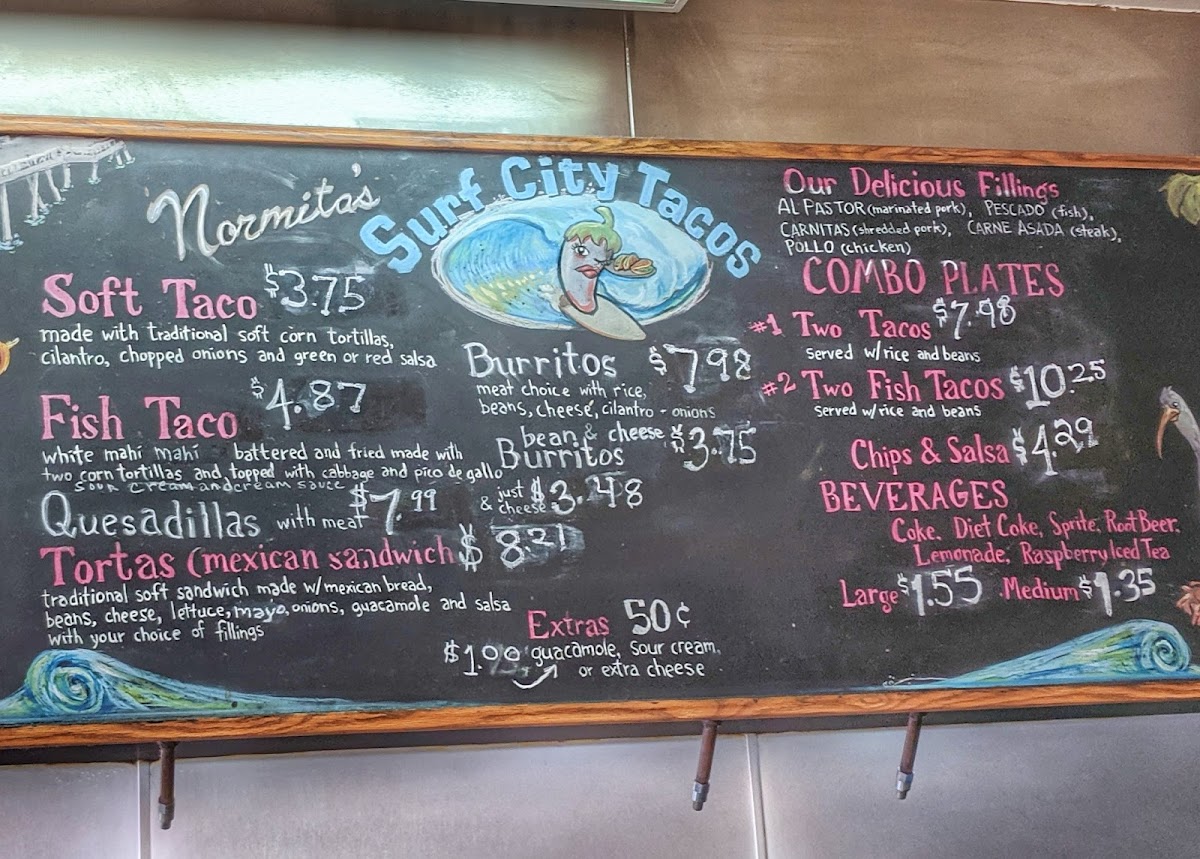 Normita's
Surf City Tacos
Soft Taco $3.75
made with traditional soft corn tortillas,
cilantro, chopped onions and green or red salsa
Fish Taco $4.87
white mahi mahi battered and fried made with
two corn tortillas and topped with cabbage and pico de gallo
sour cream and cream sauce
Quesadillas with meat $7.99
& just cheese $3.48
Tortas (mexican sandwich $8.21
traditional soft sandwich made w/mexican bread,
beans, cheese, lettuce, mayo, onions, guacamole and salsa
with your choice of fillings
Burritos $7.98
meat choice with rice,
beans, cheese, cilantro - onions
bean & cheese
Burritos $3.75
Extras 50¢
$1.00 guacamole, sour cream,
or extra cheese
Our Delicious Fillings
AL PASTOR (marinated pork), PESCADO (fish),
CARNITAS (shredded pork), CARNE ASADA (steak),
POLLO (chicken)
COMBO PLATES
#1 Two Tacos $7.98
served w/rice and beans
#2 Two Fish Tacos $10.25
served w/rice and beans
Chips & Salsa $4.29
BEVERAGES
Coke, Diet Coke, Sprite, Root Beer,
Lemonade, Raspberry Iced Tea
Large $1.55 Medium $1.35